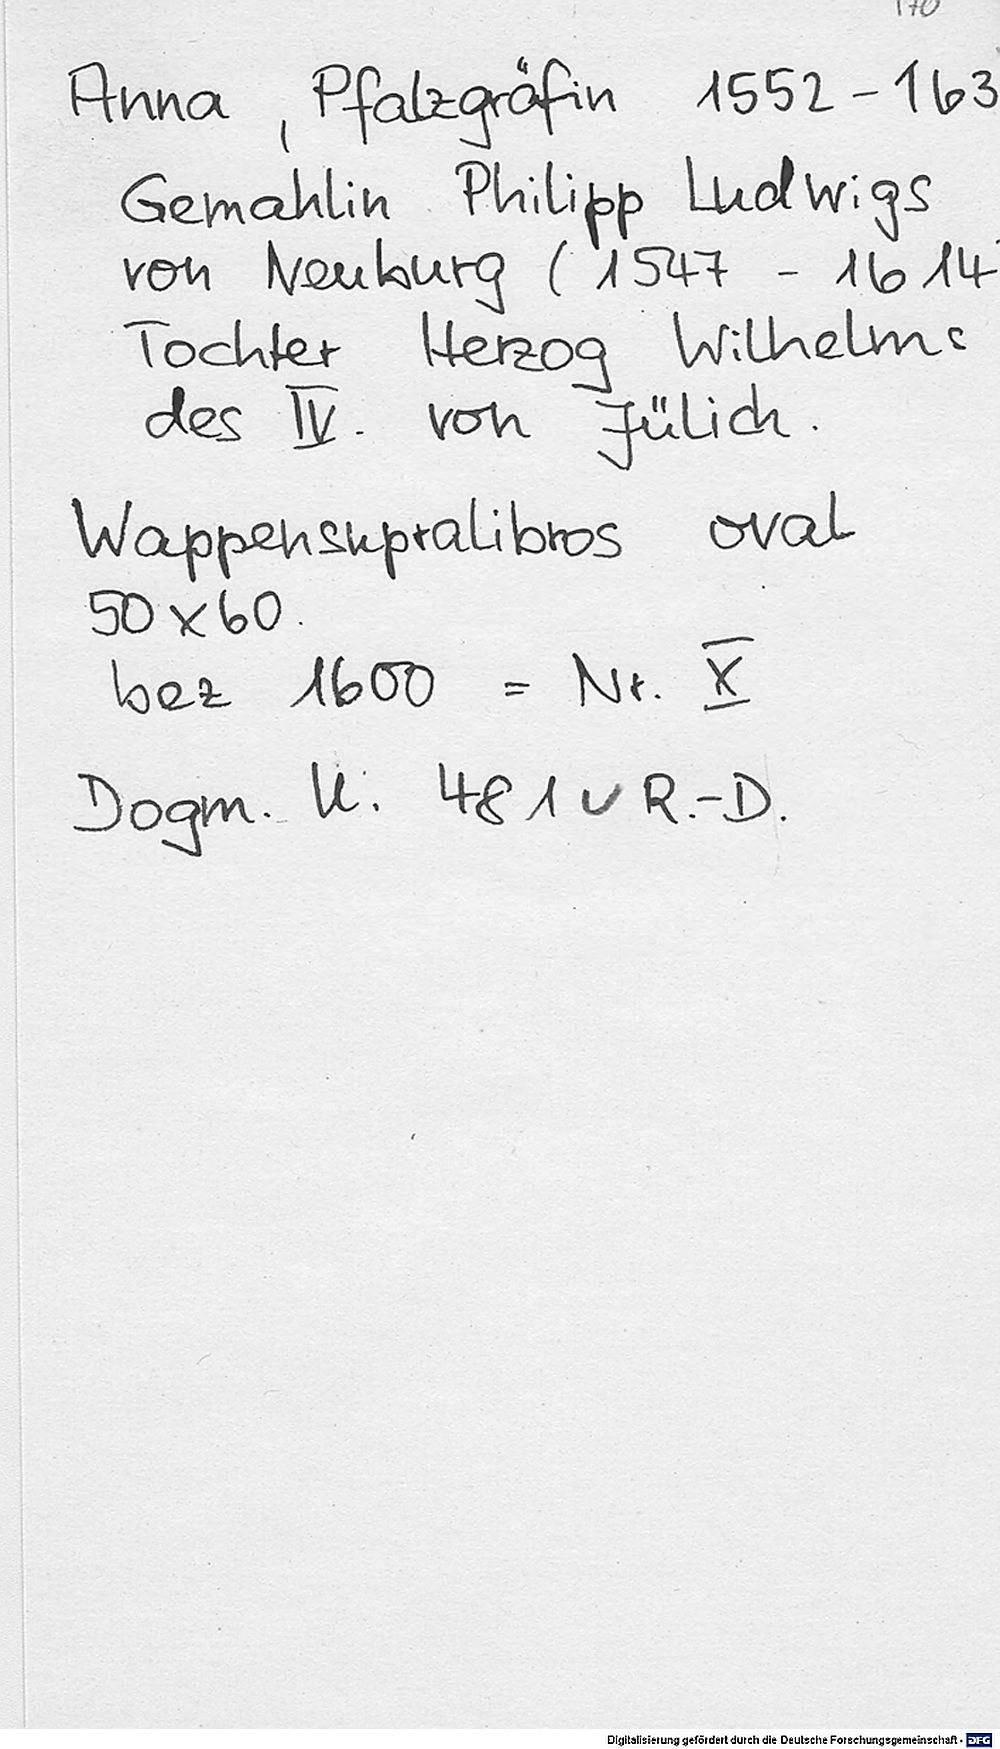 170
Anna, Pfalzgräfin 1552 - 163
Gemahlin Philipp Ludwigs
von Neuburg (1547 - 1614
Tochter Herzog Wilhelms
des IV. von Jülich.
Wappensupralibros oval
50 x 60.
bez 1600 = Nr. X
Dogm. U: 481 v R.-D.
Digitalisierung gefördert durch die Deutsche Forschungsgemeinschaft - DFG